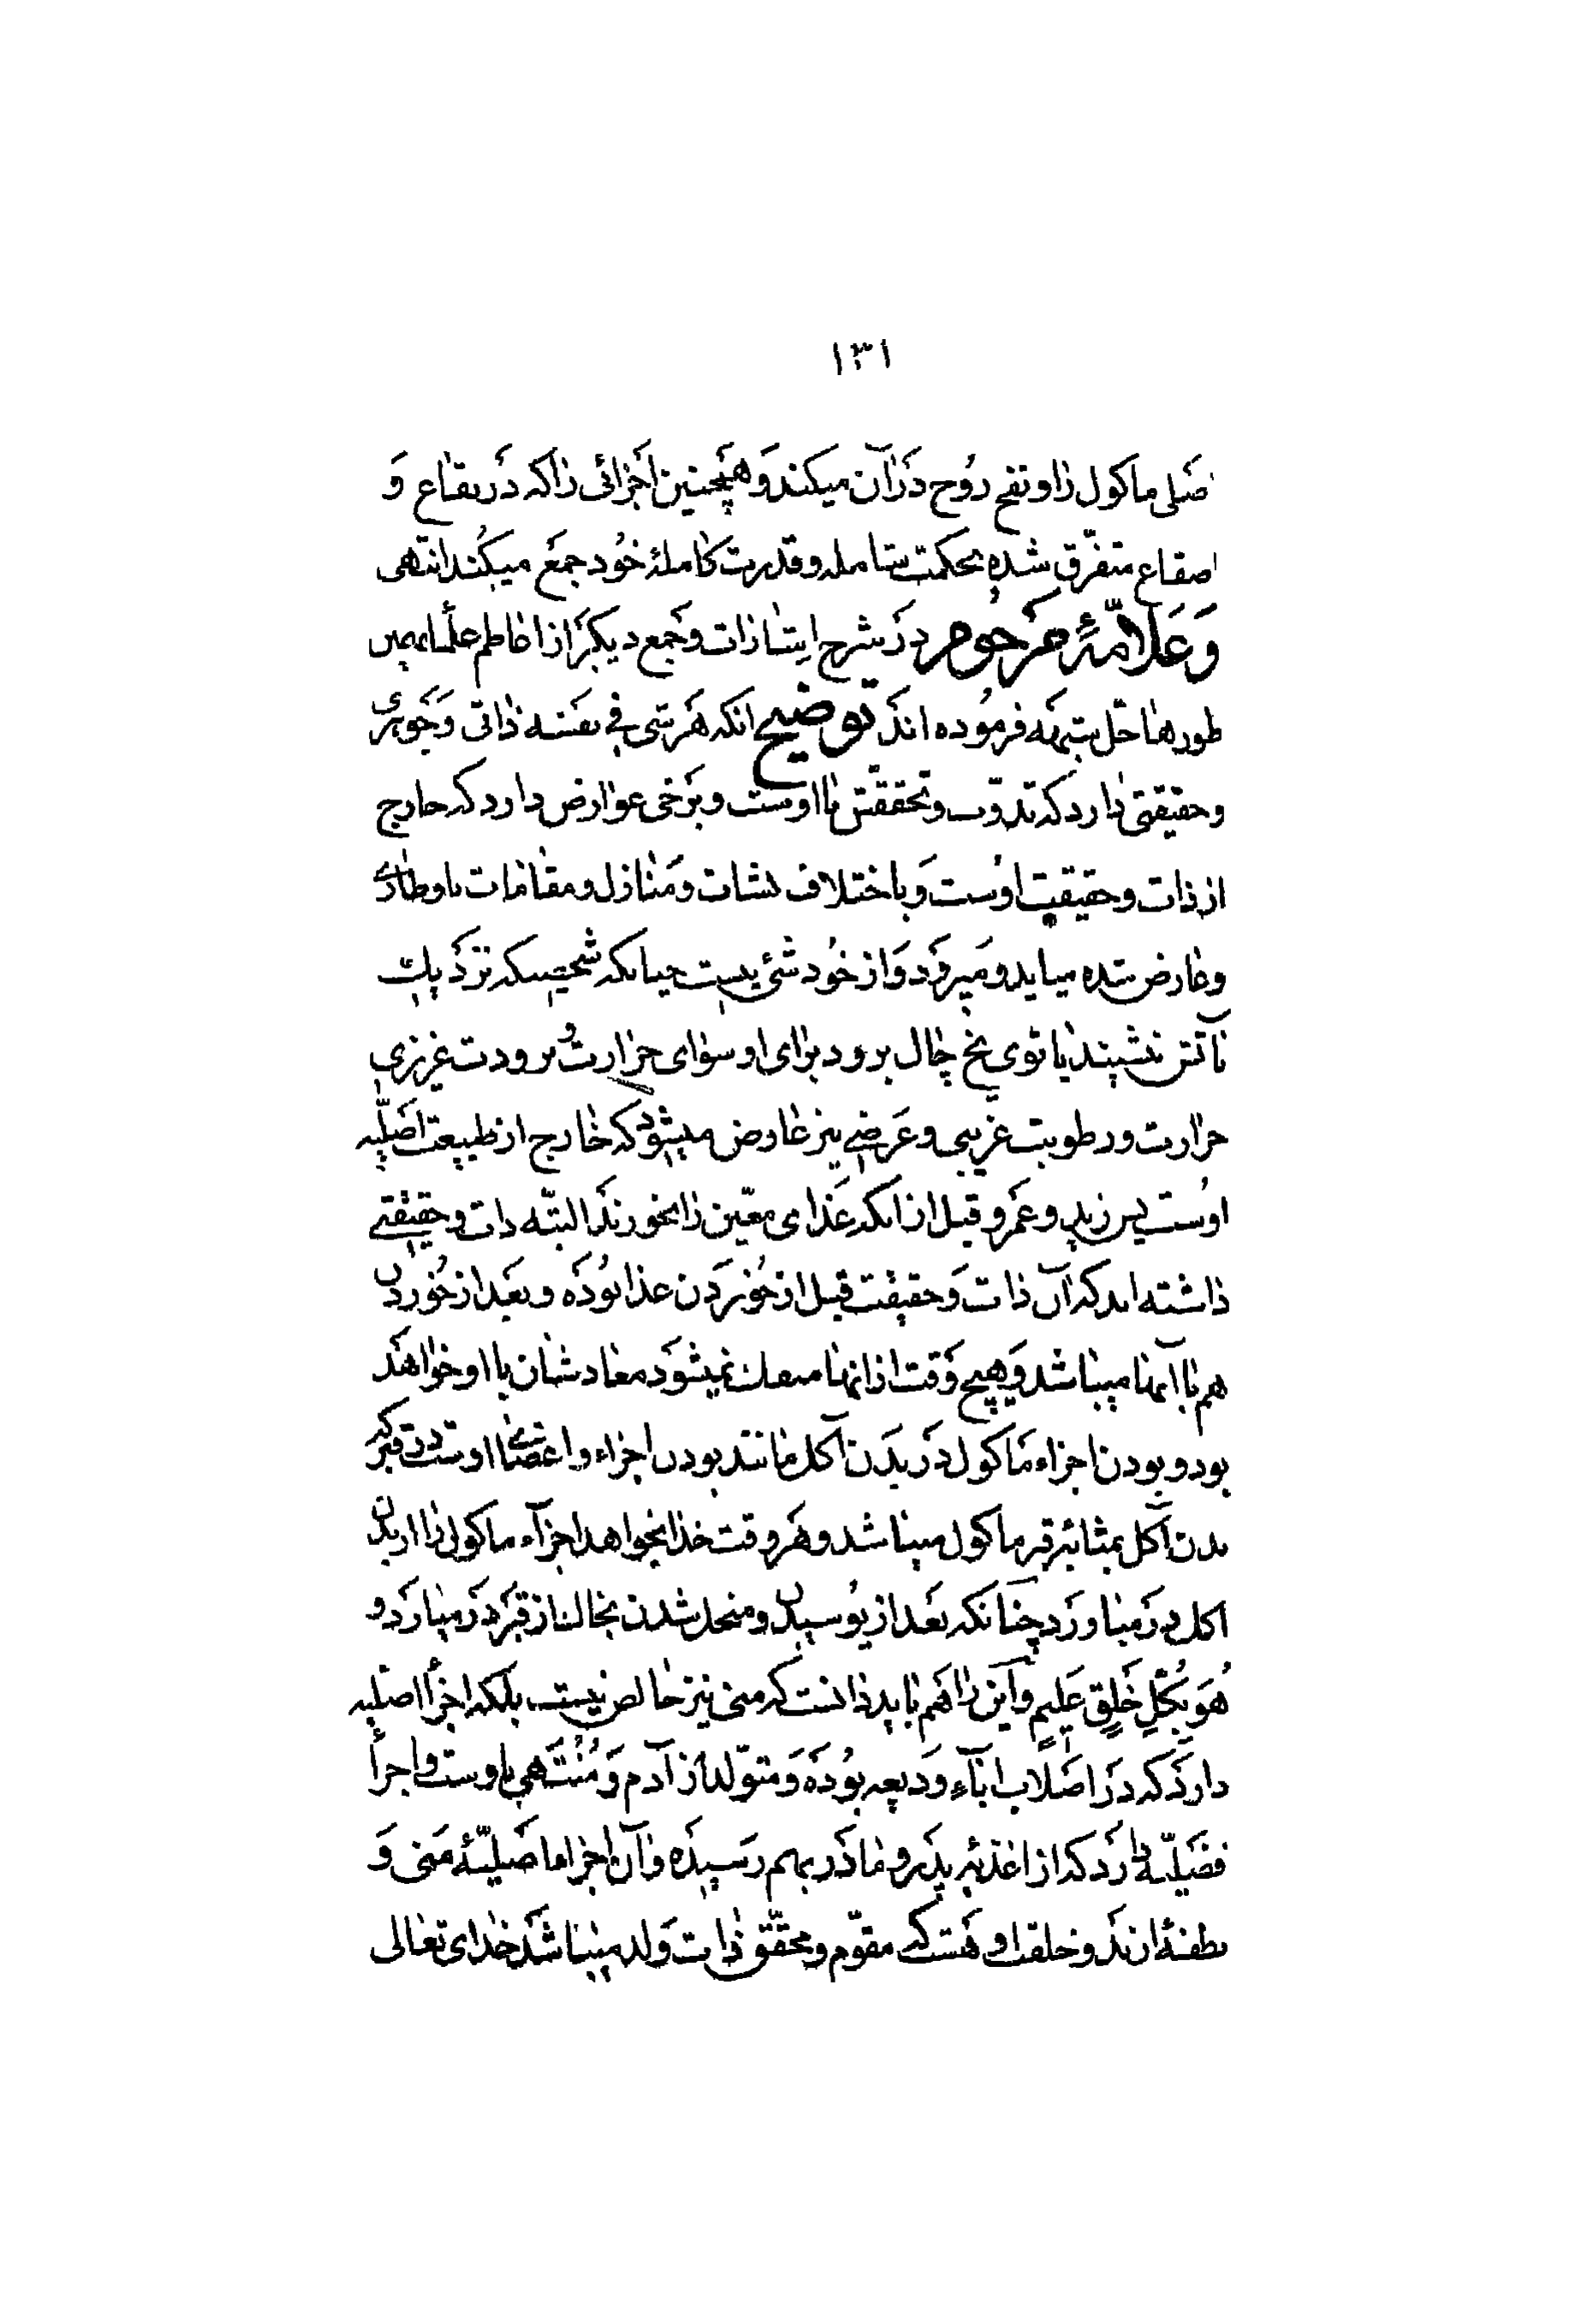 ۱۳۱
اصلی ماکول را و نفخ روح در آن میکند و همچنین اجزائی را که در بقاع و
اصقاع متفرّق شده بحکمت شامله و قدرت کاملهٔ خود جمع میکند انتهی
وَ عَلّامهٔ مرحوم در شرح اشارات و جمع دیگر از اعاظم علماء بهمین
طورها حلّ شبهه فرموده‌اند توضیح آنکه هر شی فی نفسه ذاتی و جوهری
و حقیقتی دارد که تذوّت و تحققش با اوست و برخی عوارض دارد که خارج
از ذات و حقیقت اوست و باختلاف نشات و منازل و مقامات باو طاری
و عارض شده میاید و میرود و از خود شئ نیست چنانکه شخصیکه نزدیک
آتش نشیند یا توی یخ چال برود برای او سوای حرارت و برودت غریزی
حرارت و رطوبت غریبی و عَرَضی نیز عارض میشود که خارج از طبیعت اصلیّه
اوست پس زید و عمرو قبل از انکه غذای معیّن را بخورند البتّه ذات و حقیقتی
داشته‌اند که آن ذات و حقیقت قبل از خوردن غذا بوده و بعد از خوردن
هم با آنها میباشد و هیچ وقت از انها منفک نمیشود معادشان با او خواهد
بود و بودن اجزاء ماکول در بدن آکل مانند بودن اجزاء و اعضای اوست در قبر که
بدن آکل بمثابه قبر ماکول میباشد و هر وقت خدا بخواهد اجزآء ماکول را از بدن
اکل در میاورد چنانکه بعد از پوسیدن و منحل شدن بخاک از قبر در میارد و
هُوَ بِکُلِّ خَلقٍ عَلیمٍ و این را هم باید دانست که منی نیز خالص نیست بلکه اجزا اصلیه
دارد که در اصلاب ابآء ودیعه بوده و متولد از آدم و منتهی باوست و اجزأ
فضلیّه دارد که از اغذیه پدر و مادر بهم رسیده و آن اجزا اصلیّهٔ منی و
نطفهٔ و خلقت او هست که مقوّم و محقّق ذات ولد میباشد خدای تعالی